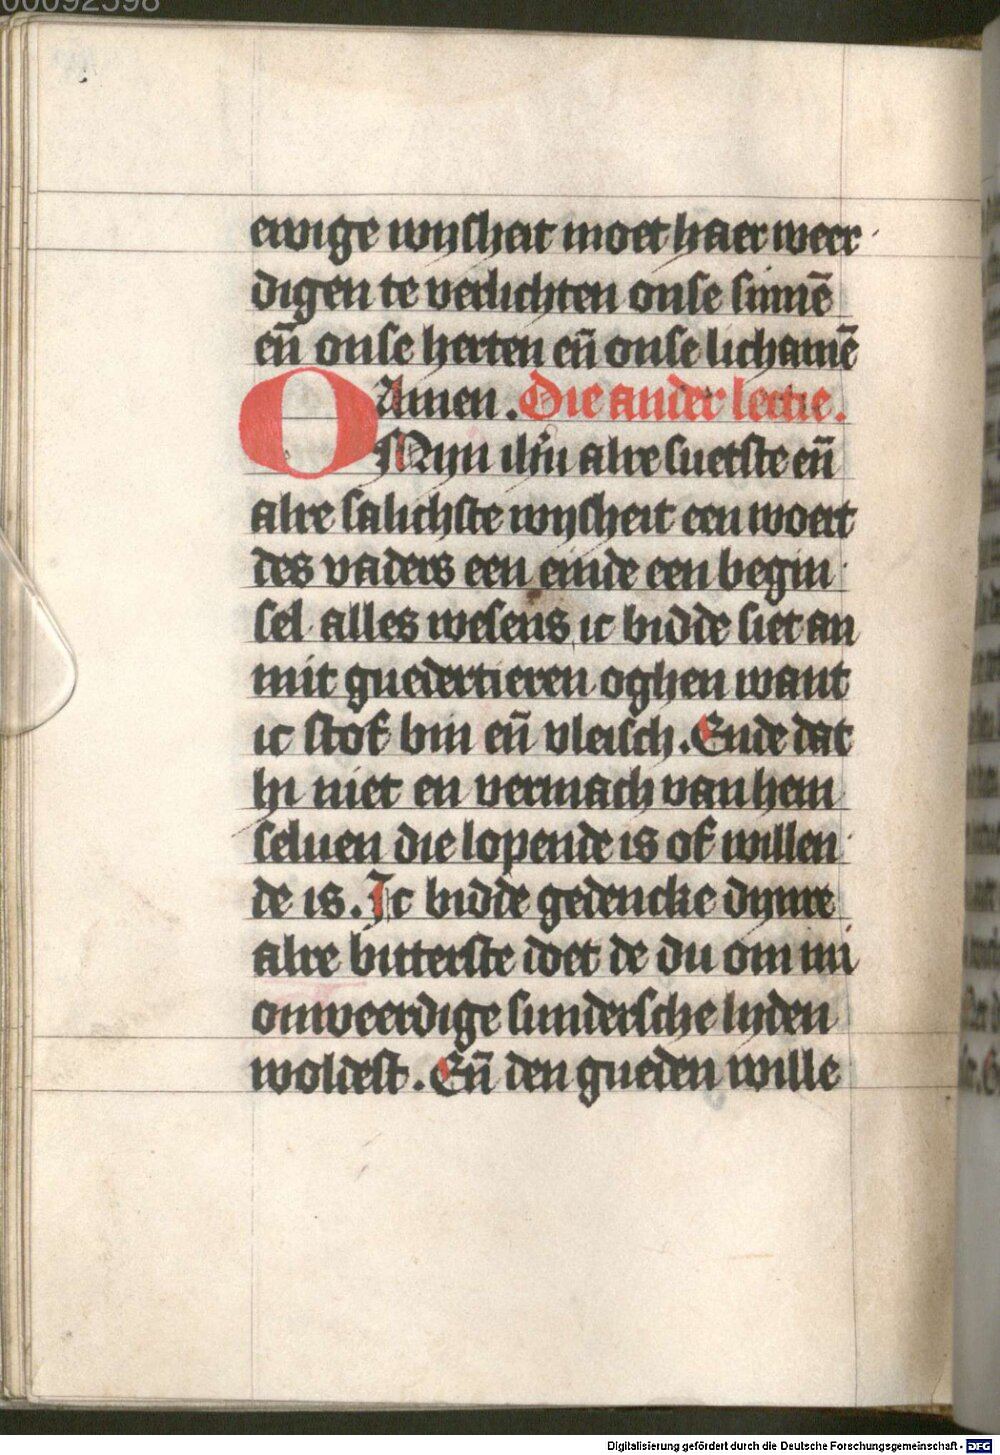 00092598
ewige wijsheit moet haer weer
digen te verlichten onse sinnē
en̄ onse herten en̄ onse lichamē
Amen. Die ander lectie.
O Myn ihū alre suetste en̄
alre salichste wijsheit een woert
des vaders een einde een begin
sel alles wesens ic bidde siet an
mit guedertieren oghen want
ic stof bin en̄ vleisch. Ende dat
hi niet en vermach van hem
seluen die lopende is of willen
de is. Ic bidde gedencke dynre
alre bitterste doet de du om mi
onweerdige sundersche lyden
woldest. En̄ den gueden wille
Digitalisierung gefördert durch die Deutsche Forschungsgemeinschaft - DFG